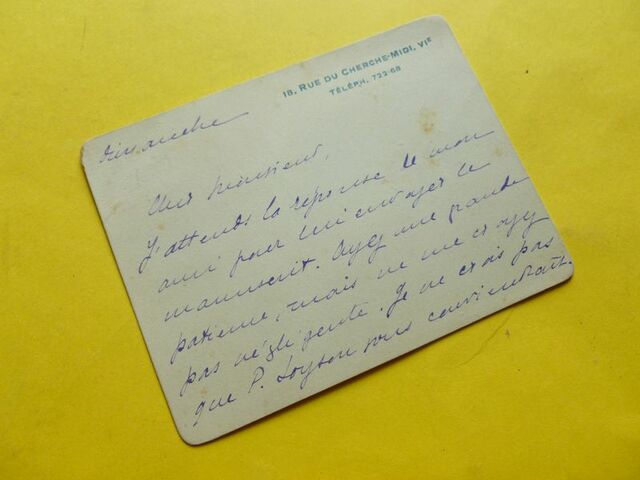 18, RUE DU CHERCHE-MIDI, VIE
TÉLÉPH. 722-68
Dimanche
Cher Monsieur,
J'attends la réponse de mon
ami pour lui envoyer le
manuscrit. Ayez une grande
patience, mais ne me croyez
pas négligente. Je ne crois pas
que P. Loyson vous conviendrait.